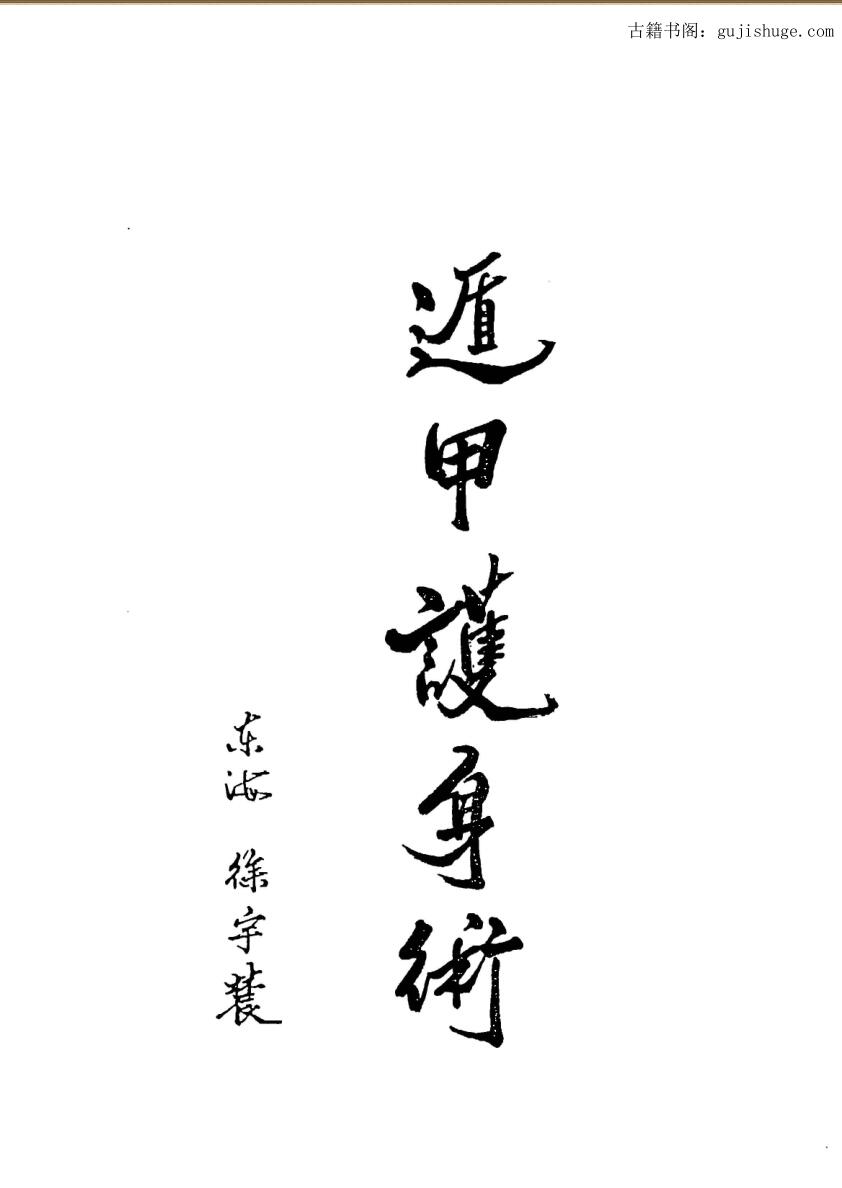 古籍书阁：gujishuge.com
遁甲護身術
东海 徐宇辳